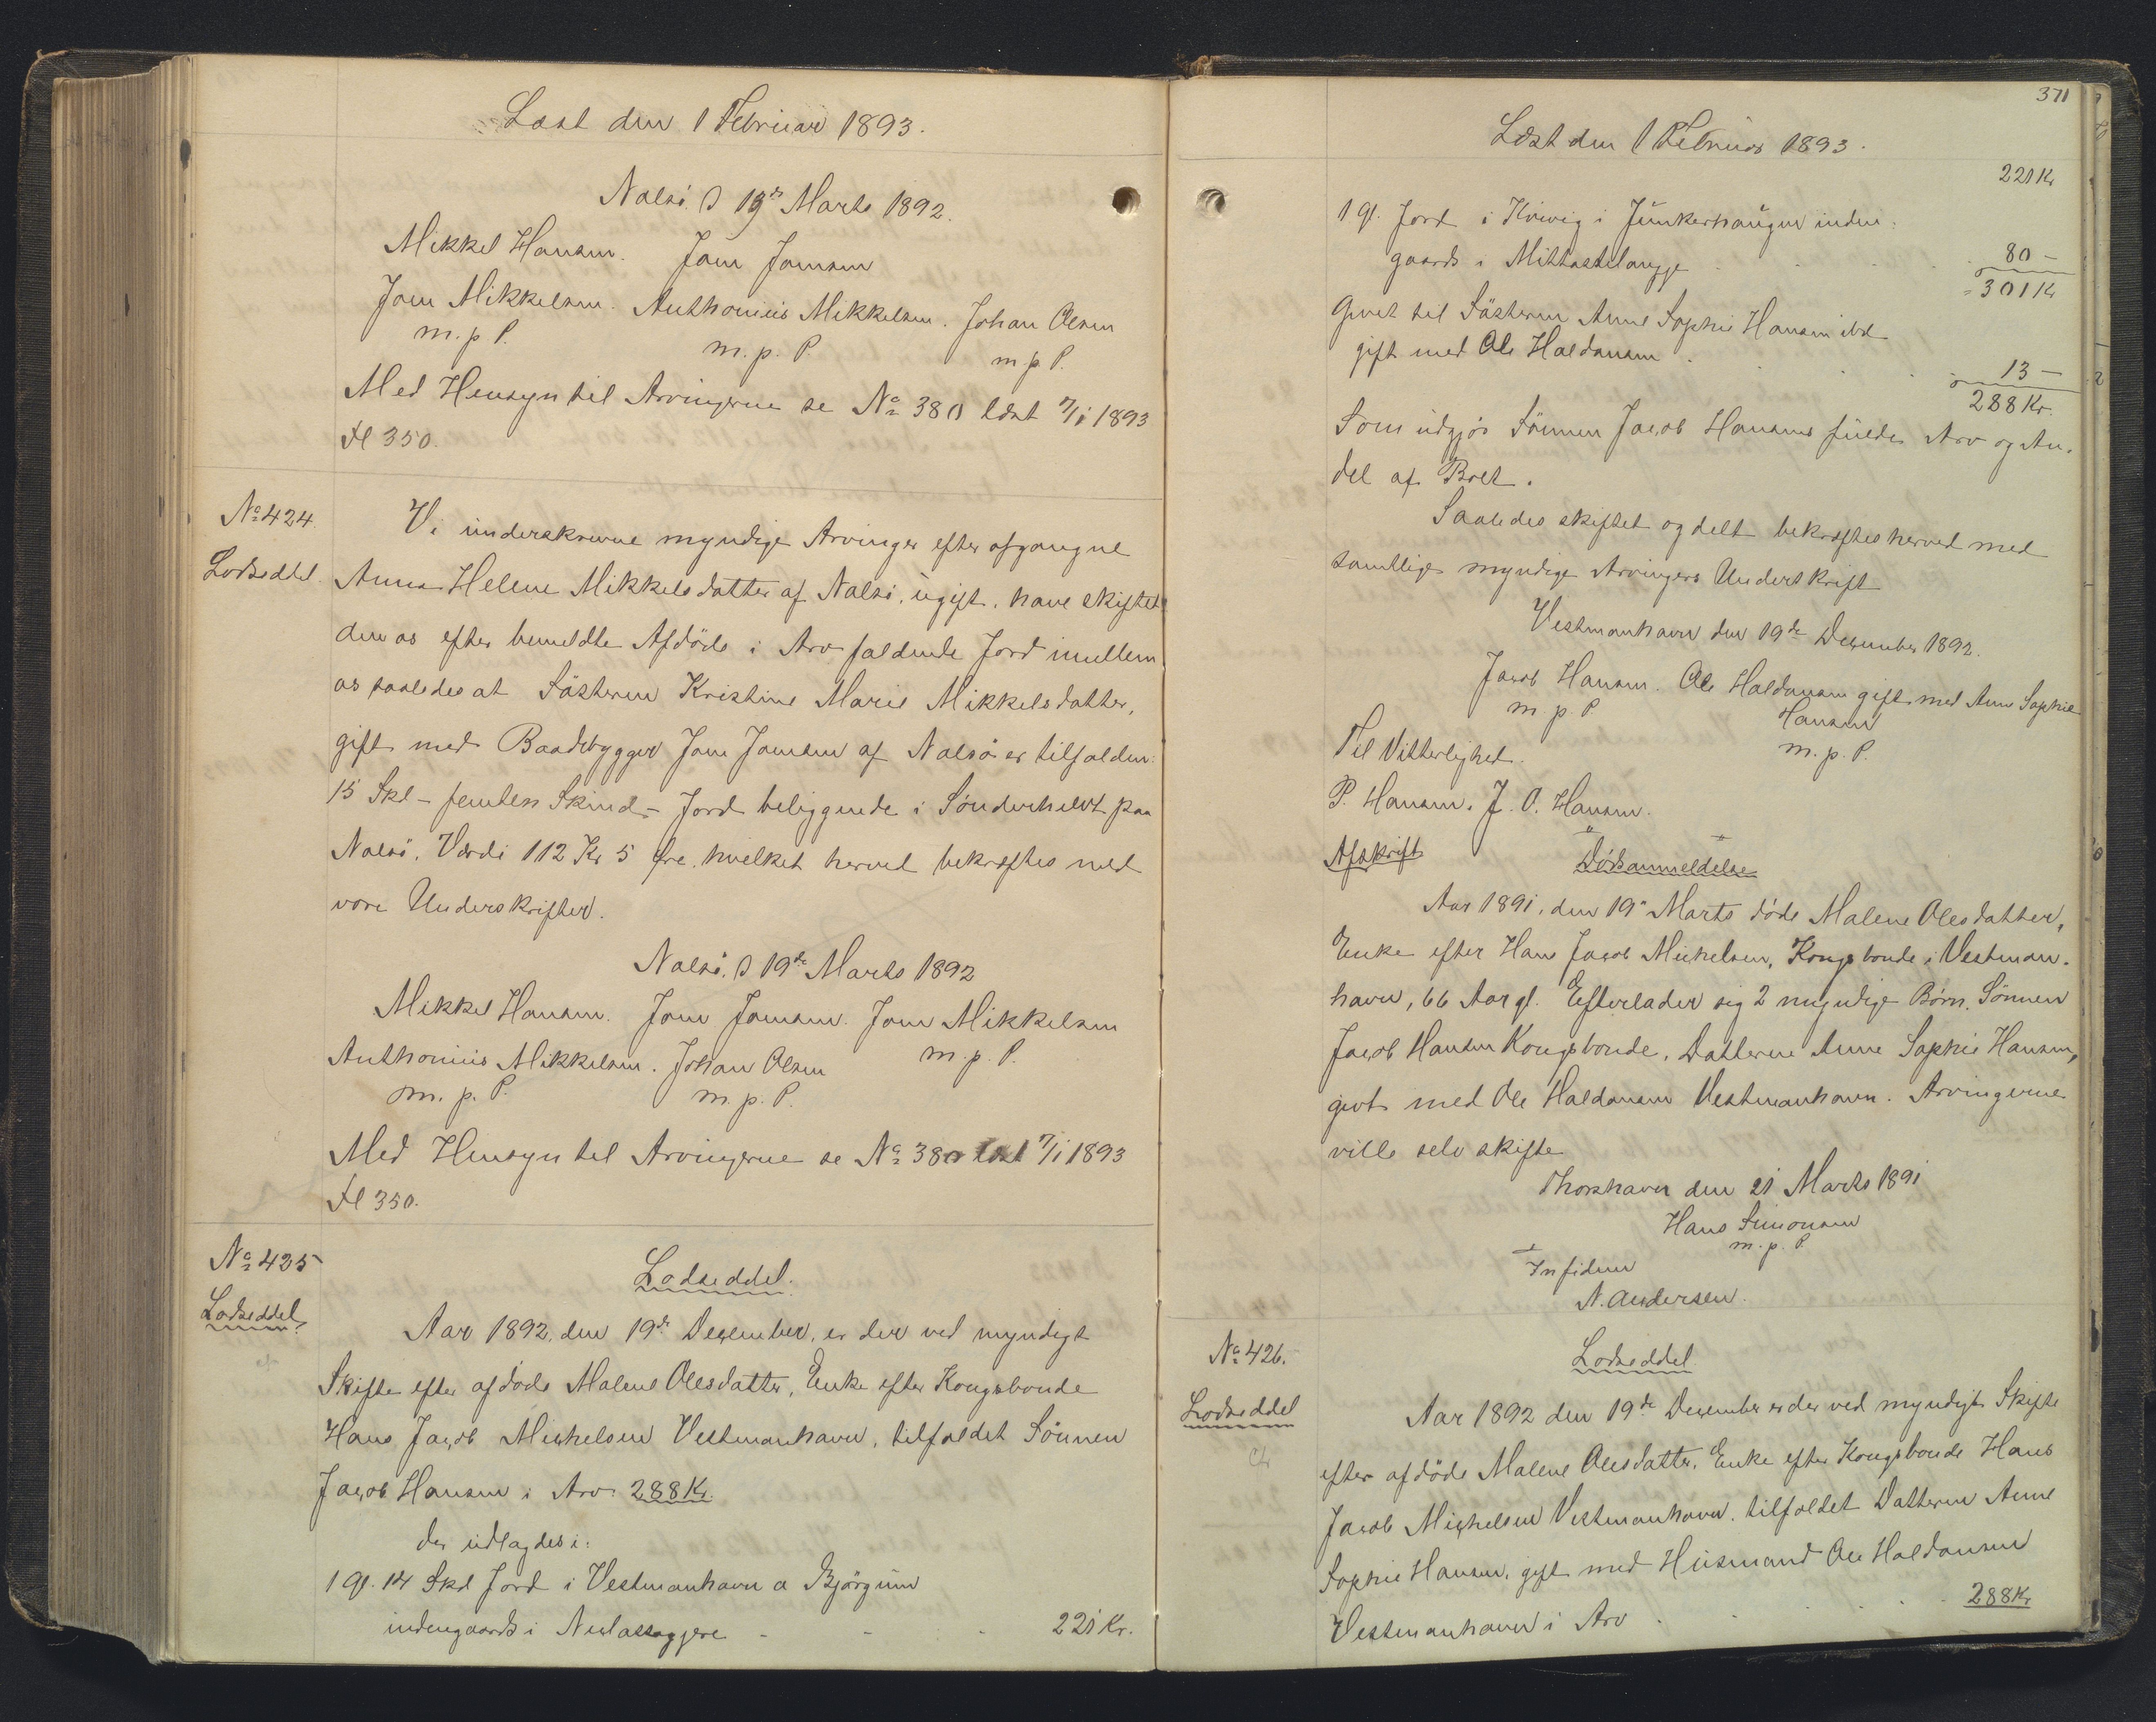 Læst den 1 Februar 1893.
Nolsö. d 19de Marts 1892.
Mikkel Hansen. Joen Joensen
Joen Mikkelsen. Anthonius Mikkelsen. Johan Olsen
m. p P. m. p. P. m p P.
Med Hensyn til Arvingerne se No 380 læst 7/1 1893
fol 350.
No 424. Vi underskrevne myndige Arvinger efter afgangne
Lodseddel Anna Helene Mikkelsdatter af Nolsö, ugift, have skiftet
den os efter bemeldte Afdöde i Arv faldende Jord imellem
os saaledes at Söstren Kristine Marie Mikkelsdatter,
gift med Baadebygger Joen Joensen af Nolsö er tilfalden:
15 Skd - femten Skind - Jord beliggende i Sønderhelvt paa
Nolsö. Værdi 112 Kr 5 Øre, hvilket herved bekræftes med
vore Underskrifter.
Nolsö. d 19de Marts 1892
Mikkel Hansen. Joen Joensen. Joen Mikkelsen
Anthonius Mikkelsen. Johan Olsen m. p. P.
m. p. P. m. p. P.
Med Hensyn til Arvingerne se No 380 læst 7/1 1893
fol 350.
No 425 Lodseddel.
Lodseddel. Aar 1892, den 19de December, er der ved myndigt
Skifte efter afdöde Malene Olesdatter, Enke efter Kongsbonde
Hans Jacob Michelsen Vestmanhavn, tilfaldet Sönnen
Jacob Hansen i Arv: 288 Kr.
der udlagdes i:
1 Gl. 14 Skd Jord i Vestmanhavn a Björgum
indengaards i 221 Kr.
371
Læst den 1 Februar 1893.
221 Kr
1 Gl. Jord i Kvivig i Junkerhaugen inden-
gaards i 80 -
301 Kr
Givet til Söstren Anne Sophie Hansen ibd
gift med Ole Haldansen 13 -
288 Kr.
Som udgjör Sönnen Jacob Hansens fulde Arv og An-
del af Boet.
Saaledes skiftet og delt bekræftes herved med
samtlige myndige Arvingers Underskrift
Vestmanhavn den 19de December 1892.
Jacob Hansen. Ole Haldansen gift med Anne Sophie
m. p. P Hansen
Til Vitterlighed. m. p. P.
P. Hansen. J. O. Hansen.
Afskrift Dödsanmeldelse
Aar 1891, den 19" Marts döde Malene Olesdatter,
Enke efter Hans Jacob Michelsen, Kongsbonde i Vestman-
havn, 66 Aar gl. Efterlader sig 2 myndige Börn, Sönnen
Jacob Hansen Kongsbonde, Datteren Anne Sophie Hansen,
givt med Ole Haldansen Vestmanhavn. Arvingerne
ville selv skifte
Thorshavn den 21 Marts 1891
Hans Simonsen
m. p. P.
In fidem
N. Andersen.
No 426. Lodseddel.
Lodseddel Aar 1892 den 19de December er der ved myndigt Skifte
efter afdöde Malene Olesdatter, Enke efter Kongsbonde Hans
Jacob Michelsen Vestmanhavn, tilfaldet Datteren Anne
Sophie Hansen, gift med Husmand Ole Haldansen
Vestmanhavn i Arv 288 Kr